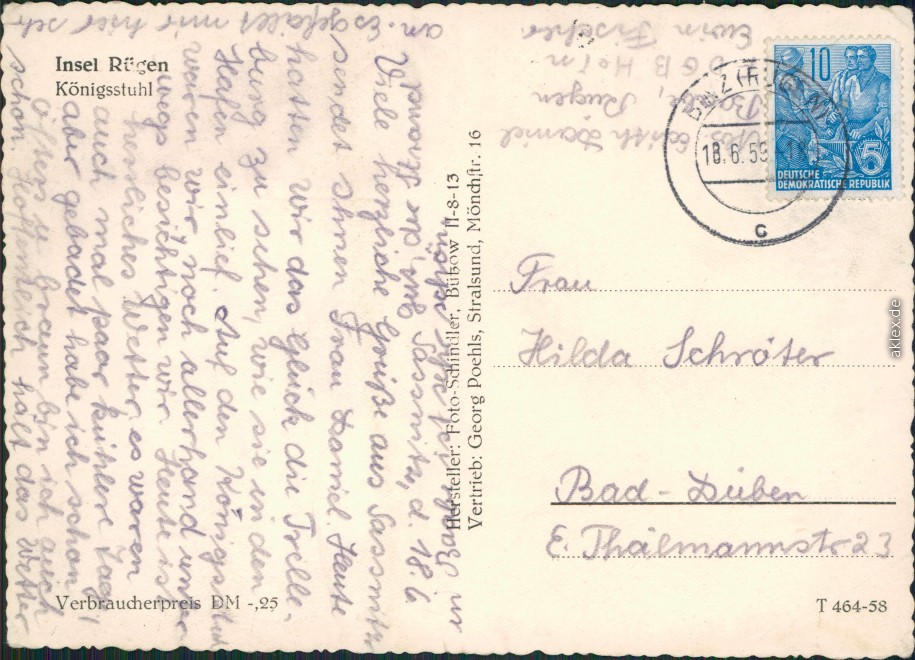 Insel Rügen
Königsstuhl
Sassnitz, d. 18.6
Viele herzliche Grüße aus Sassnitz
sendet Ihnen Frau Daniel. Heute
hatten wir das Glück die Trelle-
borg zu sehen, wie sie in den
Hafen einlief. Auf den Königsstuhl
waren wir noch allerhand unter-
wegs besichtigen wir. Heute ist
herrliches Wetter es waren
auch mal paar kühlere Tage,
aber gebadet habe ich schon
öfters. Braun bin ich auch
schon. Hält das Wetter
an. Es gefällt mir hier sehr
Hersteller: Foto-Schindler, Bützow II-8-13
Vertrieb: Georg Poehls, Stralsund, Mönchstr. 16
Edith Daniel
Rügen
DGB Heim
Erwin Fischer
10
5
DEUTSCHE
DEMOKRATISCHE REPUBLIK
BINZ (RÜGEN)
18.6.59
c
Frau
Hilda Schröter
Bad-Düben
E. Thälmannstr 23
Verbraucherpreis DM -,25
T 464-58
aklex.de